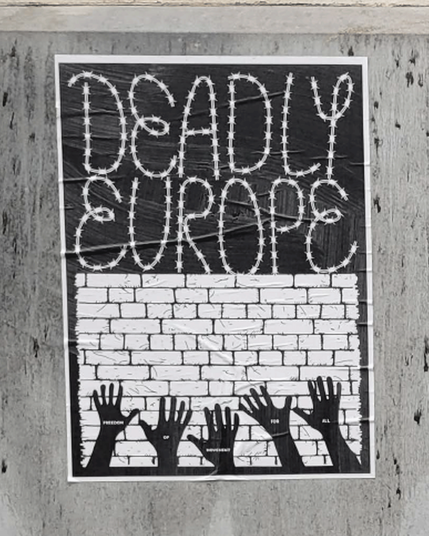 DEADLY
EUROPE
FREEDOM OF MOVEMENT FOR ALL